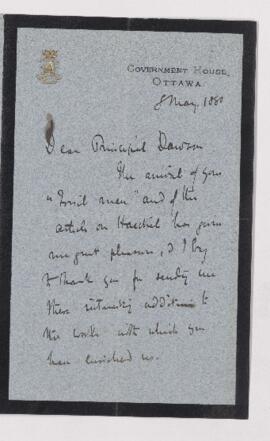 GOVERNMENT HOUSE,
OTTAWA.
8 May, 1880
Dear Principal Dawson
The arrival of your
"Fossil men" and of the
article on Haeckel has given
me great pleasure, & I beg
to thank you for sending me
these interesting additions to
the works with which you
have enriched us.